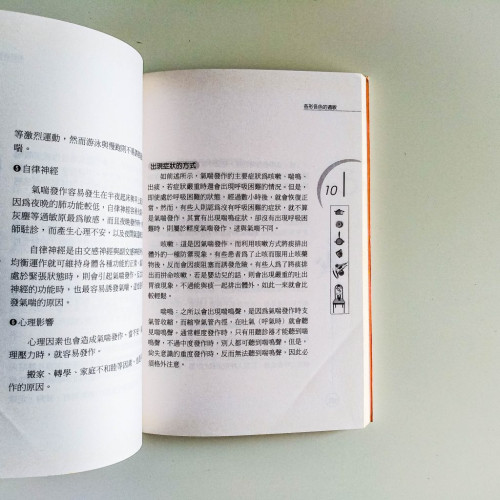 等激烈運動，然而游泳與慢跑則不易
喘。
❺自律神經
氣喘發作容易發生在半夜起
因爲夜晚的肺功能較低，自律神經
灰塵等過敏原最爲敏感，而且夜晚
師駐診，而產生心理不安，以及使
自律神經是由交感神經與副交感神
均衡運作就可維持身體各種功能的正常
處於緊張狀態時，則會引起氣喘發作。
神經的功能時，也最容易誘發氣喘
發氣喘的原因。
❻心理影響
心理因素也會造成氣喘發作。
理壓力時，就容易發作。
搬家、轉學、家庭不和睦等因素
作的原因。
各形各色的過敏
10
出現症狀的方式
如前述所示，氣喘發作的主要症狀爲咳嗽、喘鳴、
出痰，若症狀嚴重時還會出現呼吸困難的情況。但是，
即使處於呼吸困難的狀態，經過數小時後，就會恢復正
常。然而，有些人則認爲沒有呼吸困難的症狀，就不算
是氣喘發作。其實有出現喘鳴症狀，卻沒有出現呼吸困
難時，則屬於輕度氣喘發作，這與氣喘不同。
咳嗽：這是因氣喘發作，而利用咳嗽方式將痰排出
體外的一種防禦現象。有些患者爲了止咳而服用止咳藥
物後，反而會因痰阻塞而誘發危險。有些人爲了將痰排
出而拼命咳嗽，若是嬰幼兒的話，則會出現嚴重的吐出
胃液現象，不過能與痰一起排出體外，如此一來就會比
較輕鬆。
喘鳴：之所以會出現喘鳴聲，是因爲氣喘發作時支
氣管收縮，而縮窄氣管內徑，在吐氣（呼氣時）就會聽
見喘鳴聲。通常輕度發作時，只有用聽診器才能聽到喘
鳴聲。不過中度發作時，別人都可聽到喘鳴聲。但是，
如失意識的重度發作時，反而無法聽到喘鳴聲，因此必
須格外注意。